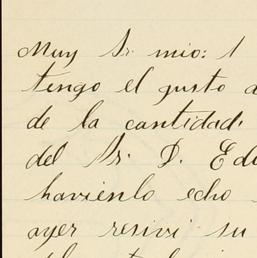 Muy Sr. mio:
tengo el gusto
de la cantidad
del Sr. D.
havienlo echo
ayer resivi su